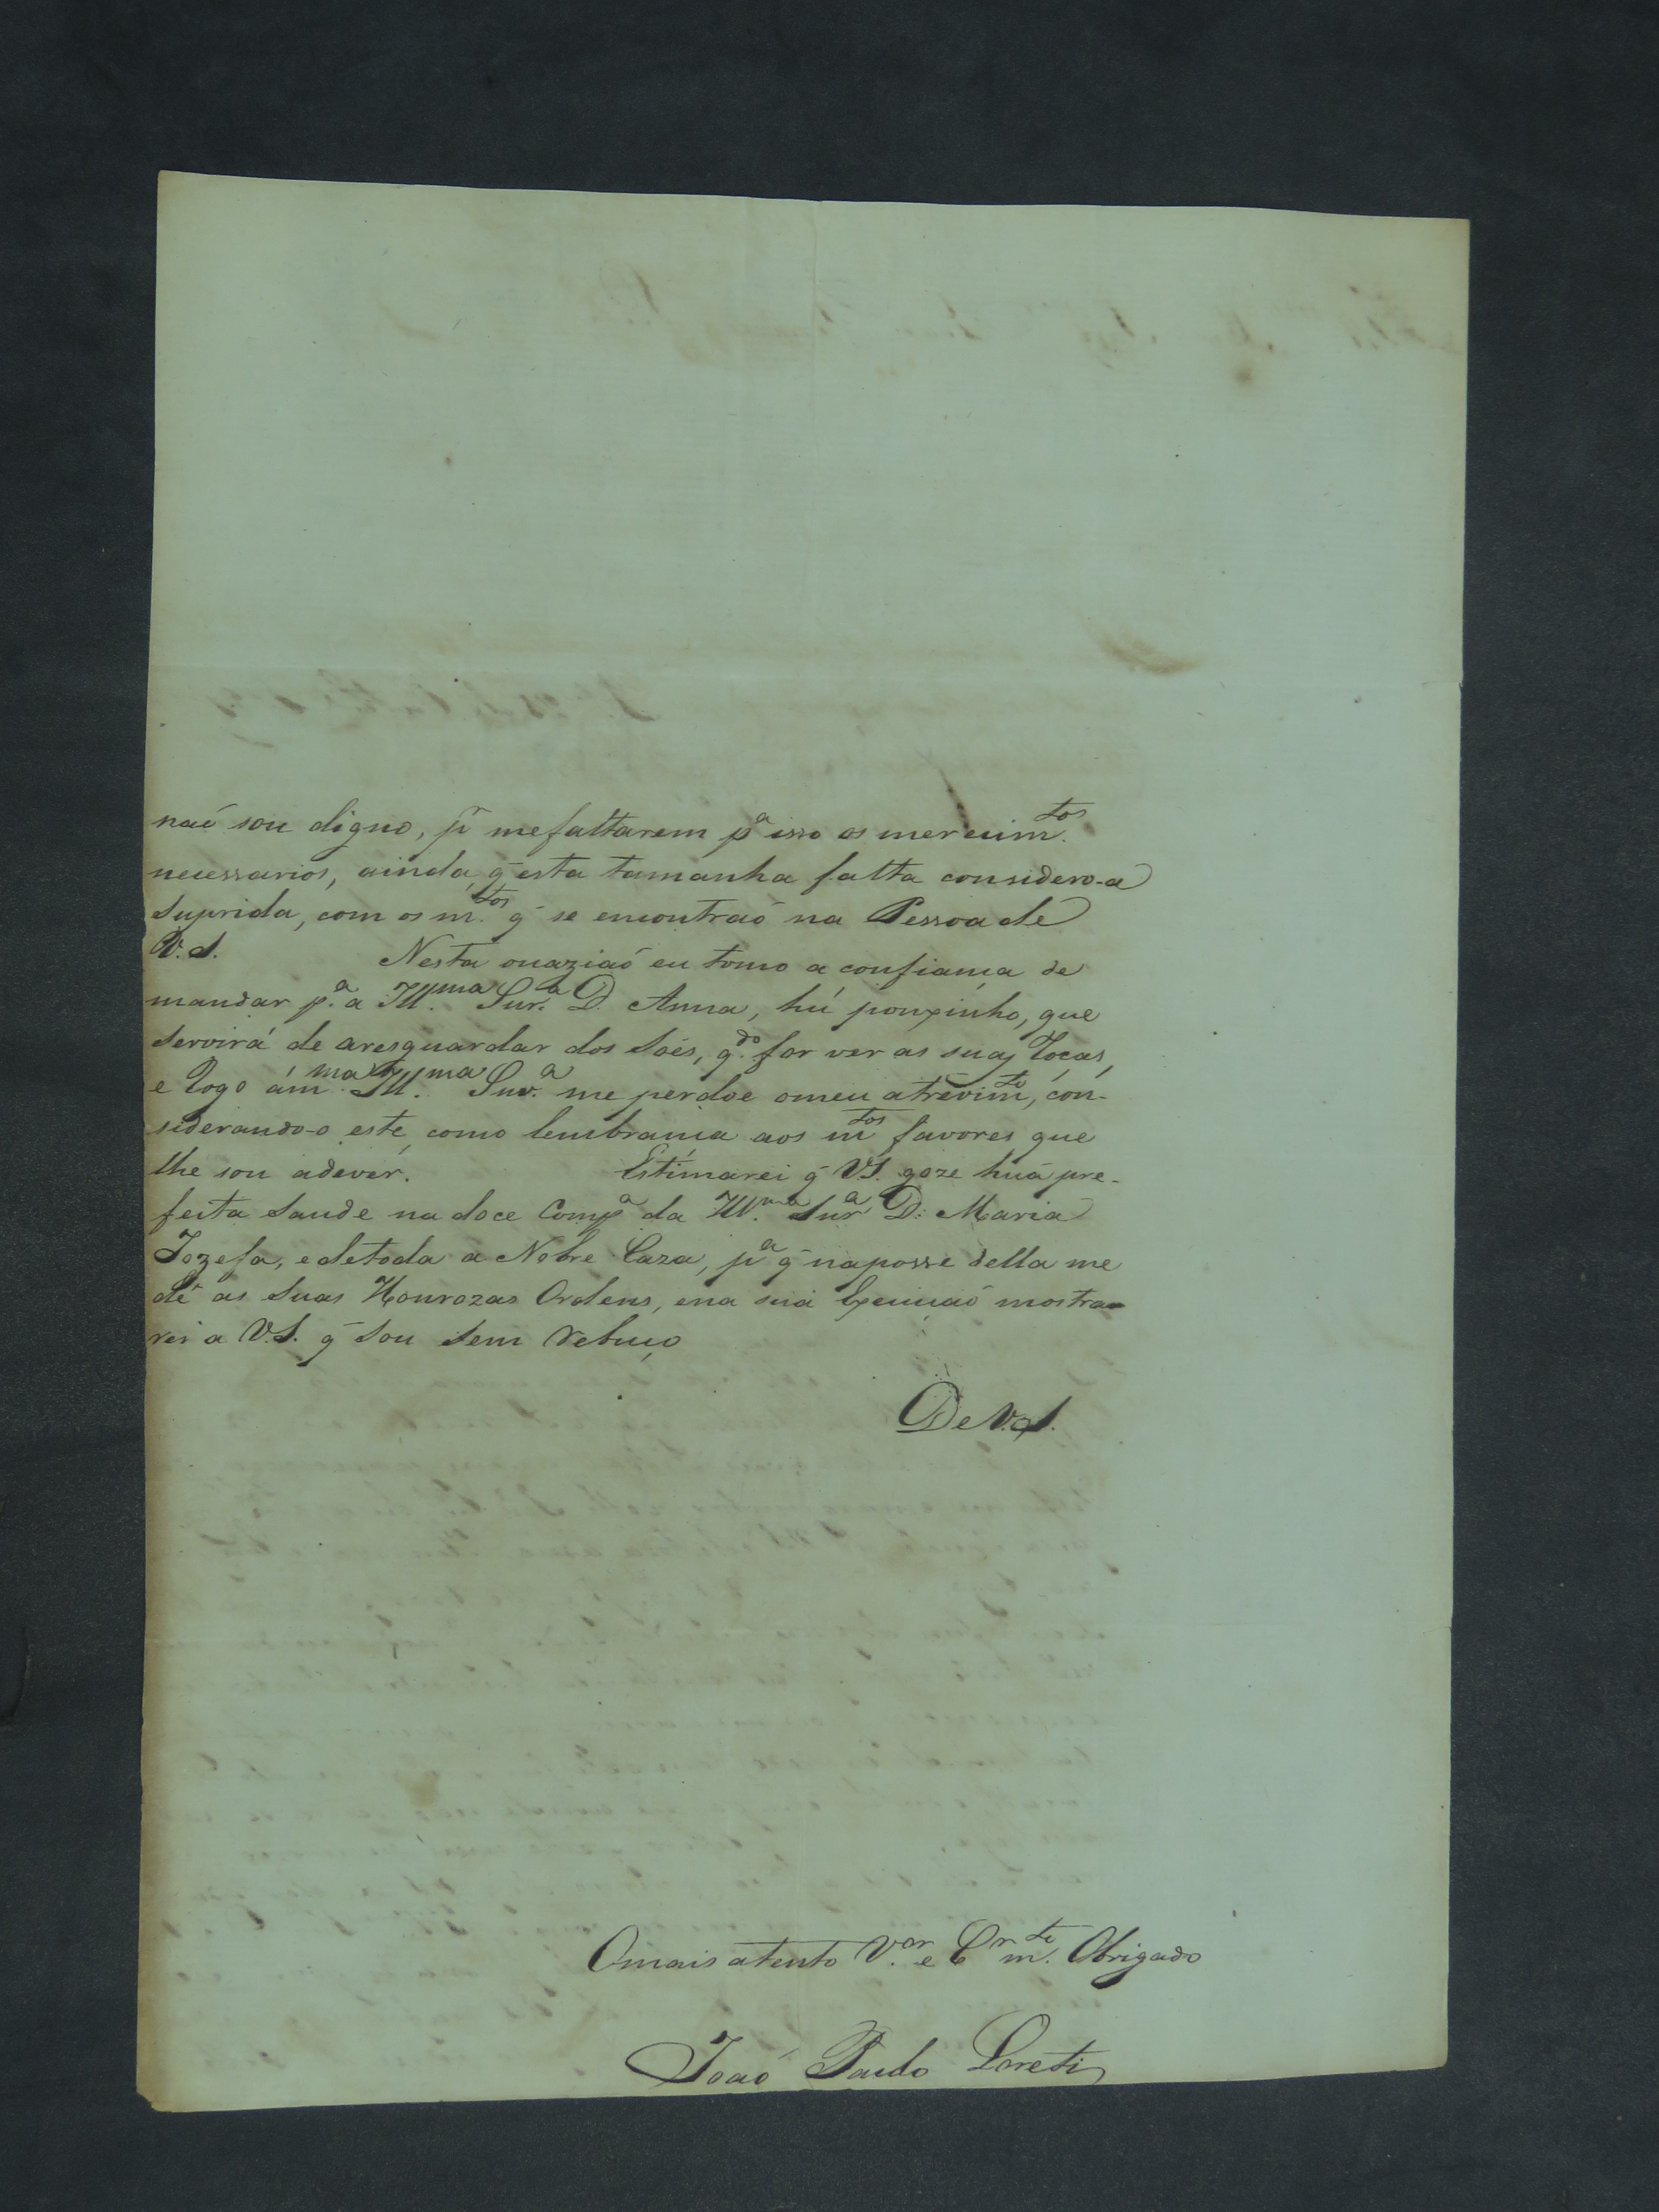 naõ sou digno, p.r mefaltarem p.a isso os merecim.tos
necessarios, ainda q̃ esta tamanha falta considero-a
suprida, com os m.tos q̃ se encontraõ na Pessoa de
V. S. Nesta ocaziaõ eu tomo a confiança de
mandar p.a a Ill.ma Snr.a D. Anna, hũ ponxinho, que
servirá de aresguardar dos Soés, q.do for ver as suas Tocas,
e Rogo ám.ma Ill.ma Snr.a me perdoe omeu atrevim.to, con-
siderando-o este como lembrança aos m.tos favores que
lhe sou adever. Estimarei q̃ V.S. goze huã pre-
feita Saude na doce Comp.a da Ill.ma Snr.a D. Maria
Jozefa, edetoda a Nobre Caza, p.a q̃ naposse della me
dê as suas Honrozas Ordens, ena sua Execuçaõ mostra-
rei a V.S. q̃ Sou Sem Rebuço
De V. S.
Omais atento V.or e Cr m.to Obrigado
Joaõ Paulo Loreti